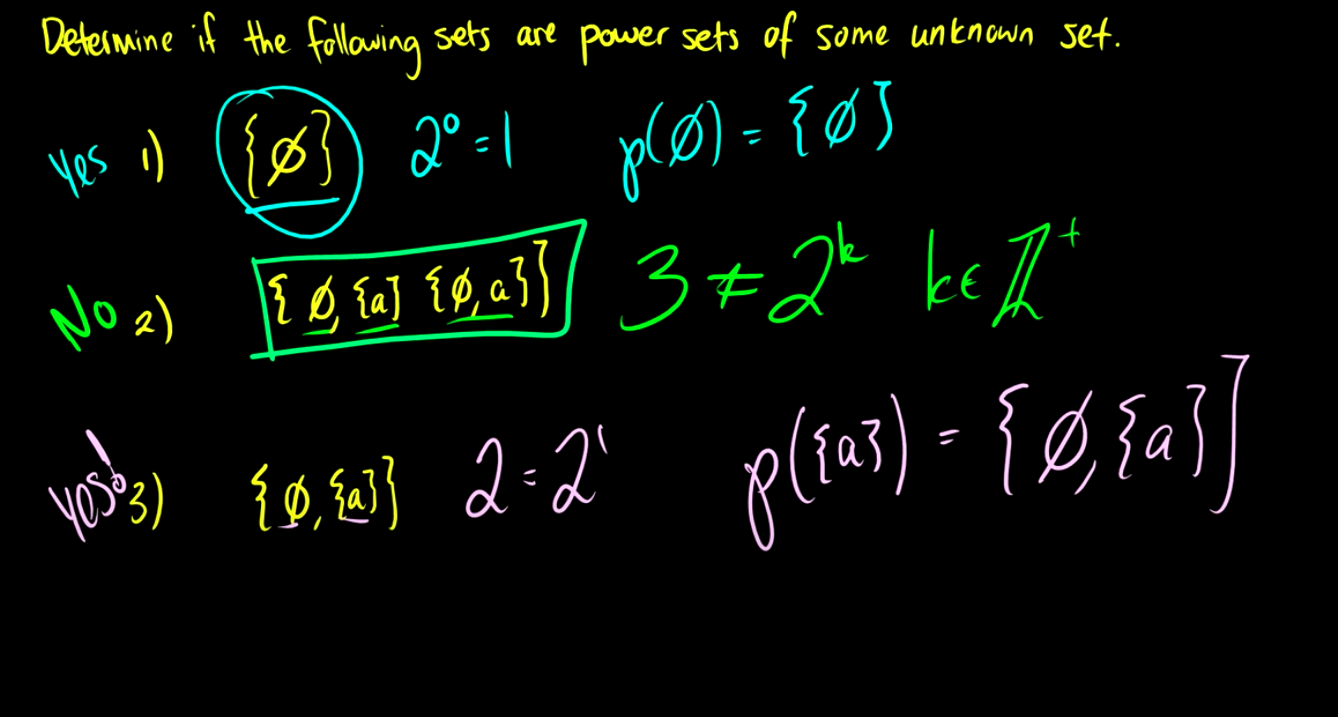 Determine if the following sets are power sets of some unknown set.
Yes 1) {∅} 2⁰ = 1 p(∅) = {∅}
No 2) {∅, {a} {∅, a}} 3 ≠ 2ᵏ k ∈ ℤ⁺
yes! 3) {∅, {a}} 2 = 2¹ p({a}) = {∅, {a}}